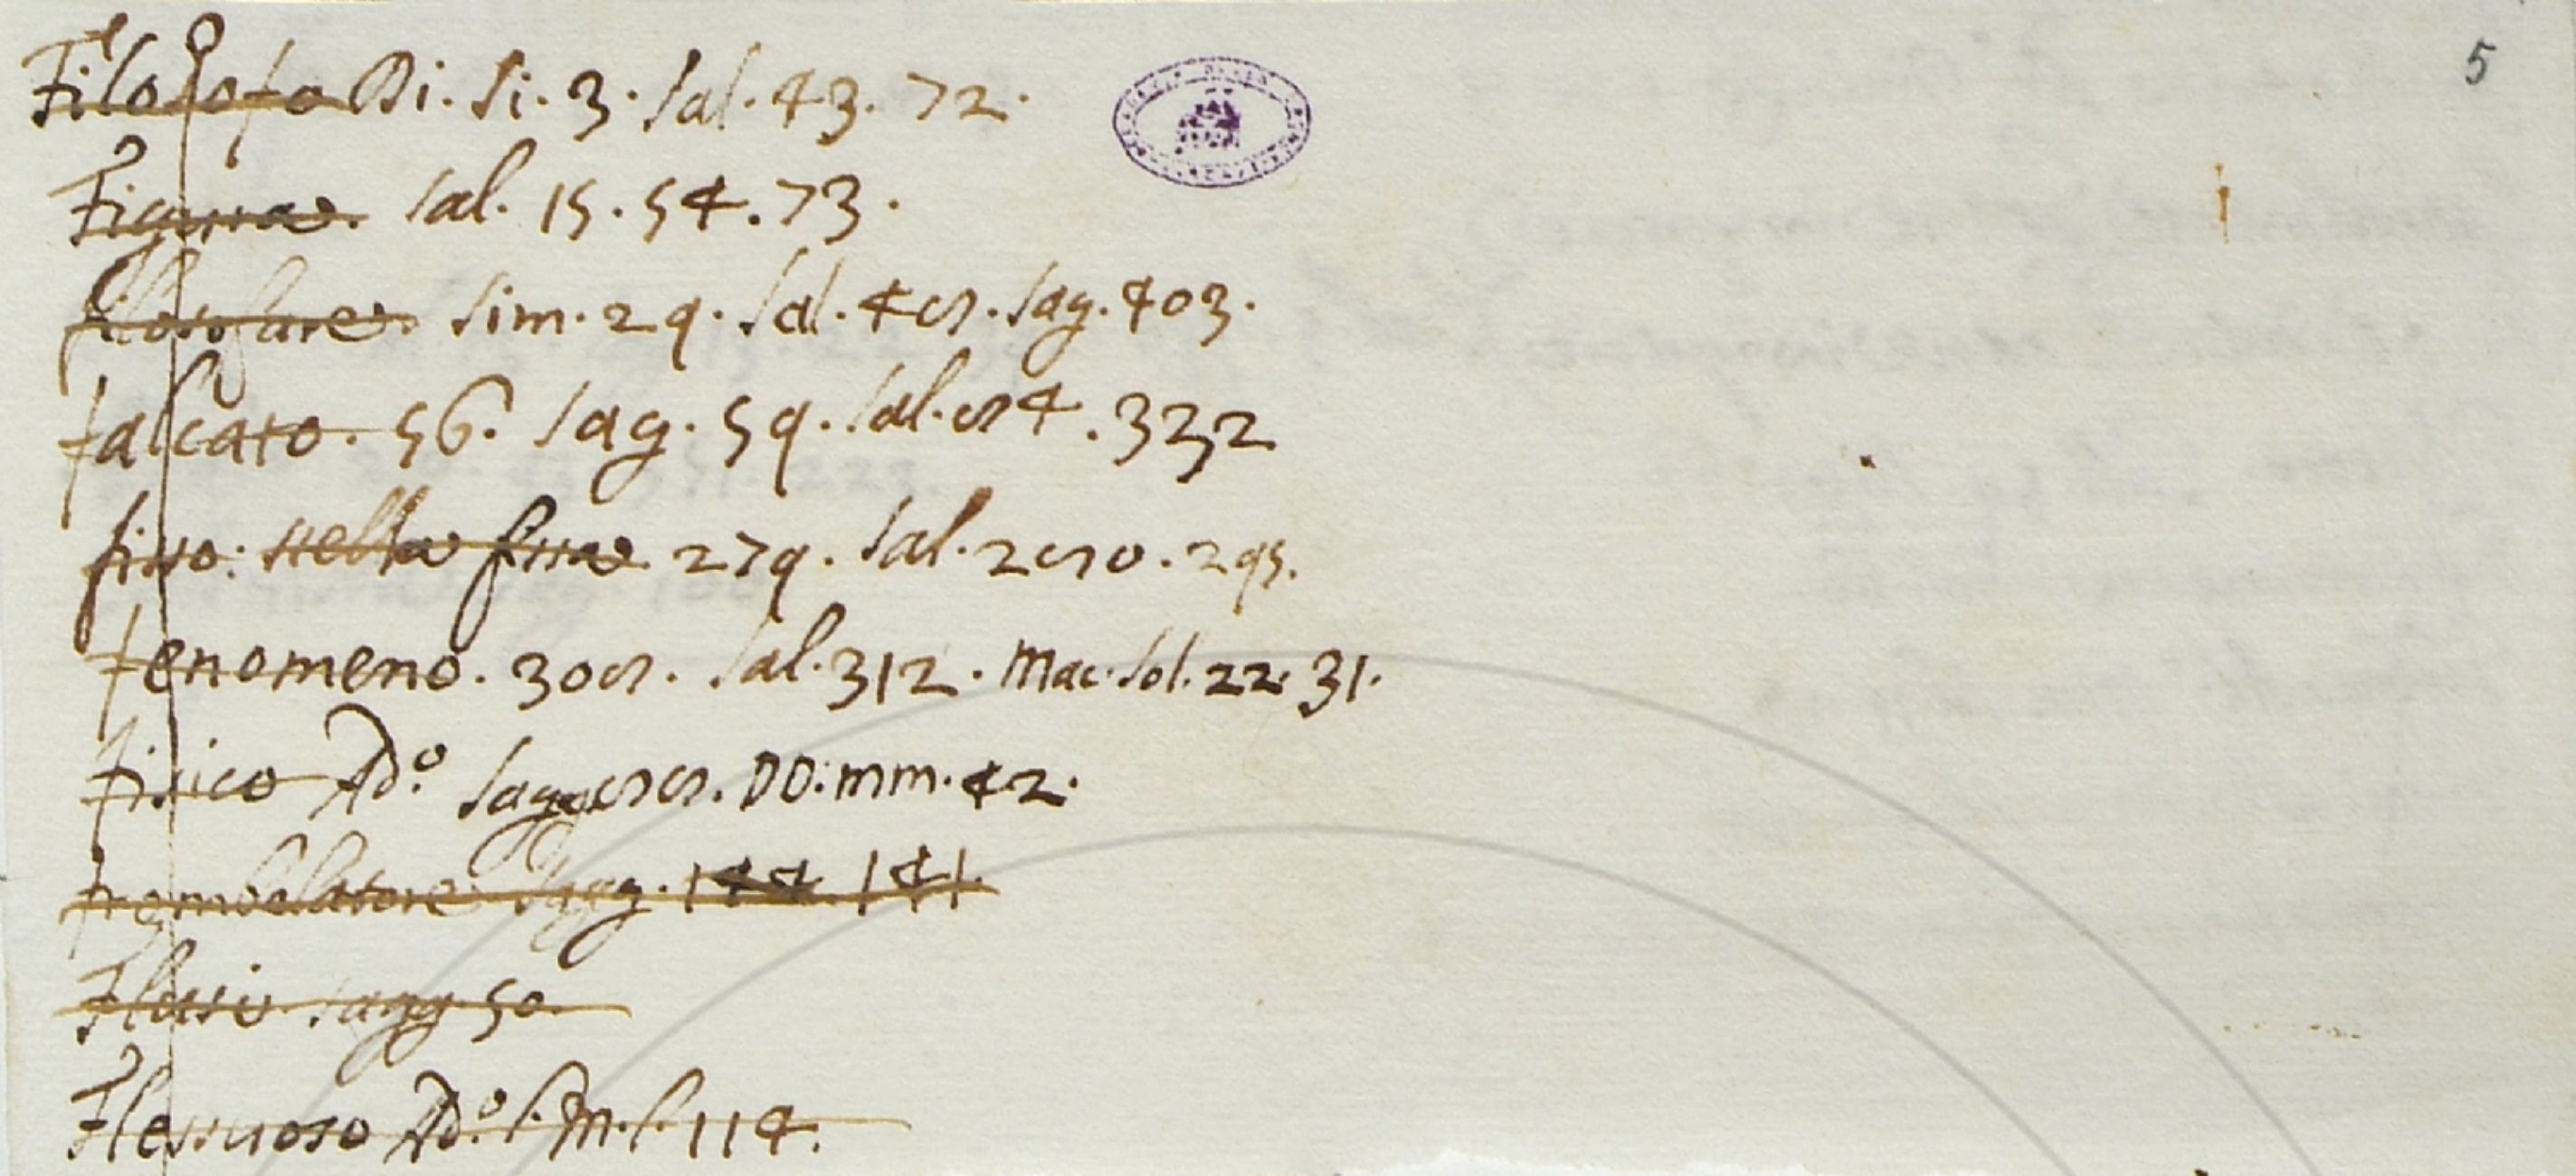 5
Filosofo Di. Si. 3. Sal. 43. 72.
Figura. Sal. 15. 54. 73.
filosofare. Sim. 29. Sal. 48. Sag. 403.
falcato. 56. Sag. 59. Sal. 84. 332
fisso. stella fissa 279. Sal. 280. 295.
fenomeno. 308. Sal. 312. Mac. Sol. 22. 31.
fisico Ad.º Sagg. 88. DD. mm. 42.
frombolatore Sagg. 144. 141.
Flusso. Sagg. 50.
Flessuoso Ad.º l. M. l. 114.